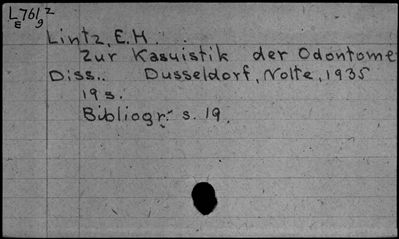 L761z
E 9
Lintz, E.H.
Zur Kasuistik der Odontome
Diss.. Dusseldorf, Nolte, 1935
19 s.
Bibliogr. s. 19.